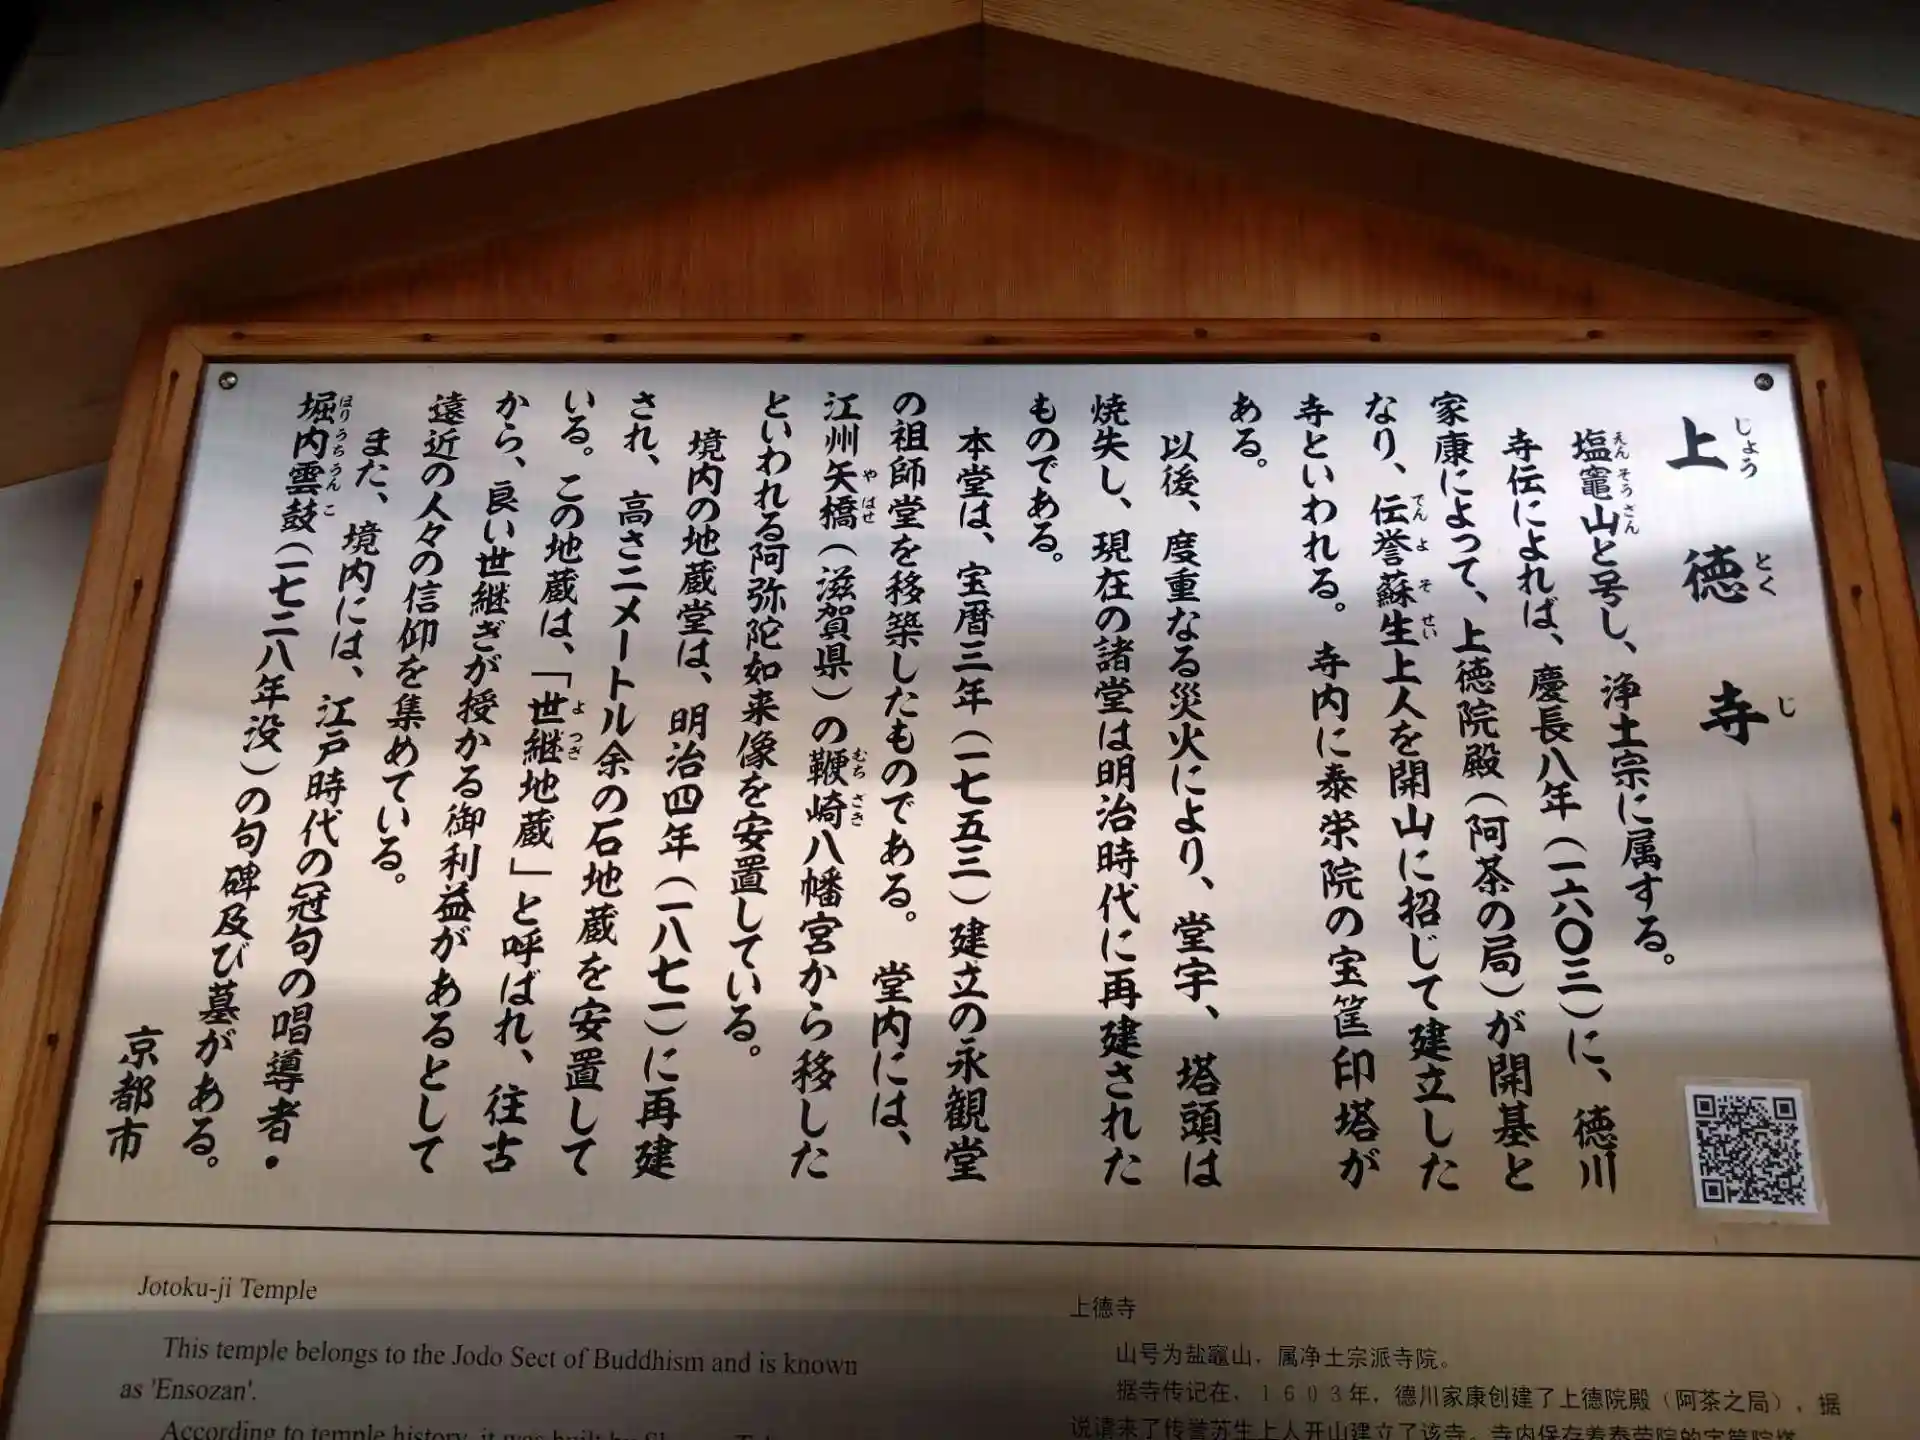 上徳寺
じょうとくじ
塩竈山と号し、浄土宗に属する。
えんそうざん
寺伝によれば、慶長八年（一六〇三）に、徳川
家康によって、上徳院殿（阿茶の局）が開基と
なり、伝誉蘇生上人を開山に招じて建立した
でんよそせい
寺といわれる。寺内に泰栄院の宝筐印塔が
ある。
以後、度重なる災火により、堂宇、塔頭は
焼失し、現在の諸堂は明治時代に再建された
ものである。
本堂は、宝暦三年（一七五三）建立の永観堂
の祖師堂を移築したものである。堂内には、
江州矢橋（滋賀県）の鞭崎八幡宮から移した
やはせ
むちざき
といわれる阿弥陀如来像を安置している。
境内の地蔵堂は、明治四年（一八七一）に再建
され、高さ二メートル余の石地蔵を安置して
いる。この地蔵は、「世継地蔵」と呼ばれ、往古
よつぎ
から、良い世継ぎが授かる御利益があるとして
遠近の人々の信仰を集めている。
また、境内には、江戸時代の冠句の唱導者・
堀内雲鼓（一七二八年没）の句碑及び墓がある。
ほりうちうんこ
京都市
Jotoku-ji Temple
This temple belongs to the Jodo Sect of Buddhism and is known
as 'Ensozan'.
According to temple history, it was built by
上德寺
山号为盐竈山，属净土宗派寺院。
据寺传记在，1603年，德川家康创建了上德院殿（阿茶之局），据
说请来了传誉苏生上人开山建立了该寺。寺内保存着泰荣院的宝箧院塔